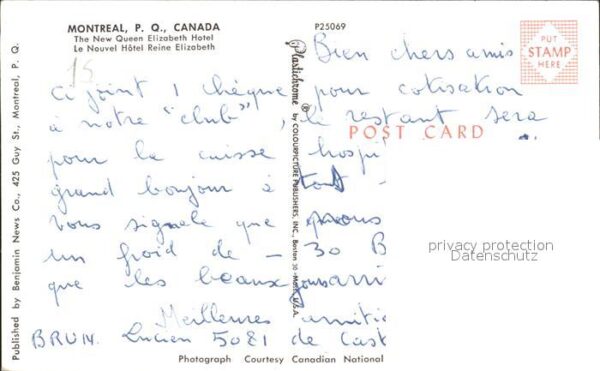 MONTREAL, P. Q., CANADA
The New Queen Elizabeth Hotel
Le Nouvel Hôtel Reine Elizabeth
P25069
PUT
STAMP
HERE
15
Bien chers amis
ci joint 1 chèque pour cotisation
à notre "club", le restant sera
POST CARD
pour la caisse hospi
grand bonjour à tous -
Vous signale que nous
un froid de - 30 B
que les beaux jours arri
Meilleures amitié
BRUN. Lucien 5081 de Cast
privacy protection
Datenschutz
Photograph Courtesy Canadian National
Published by Benjamin News Co., 425 Guy St., Montreal, P. Q.
Plastichrome ® by COLOURPICTURE PUBLISHERS, INC., Boston 30, Mass., U.S.A.